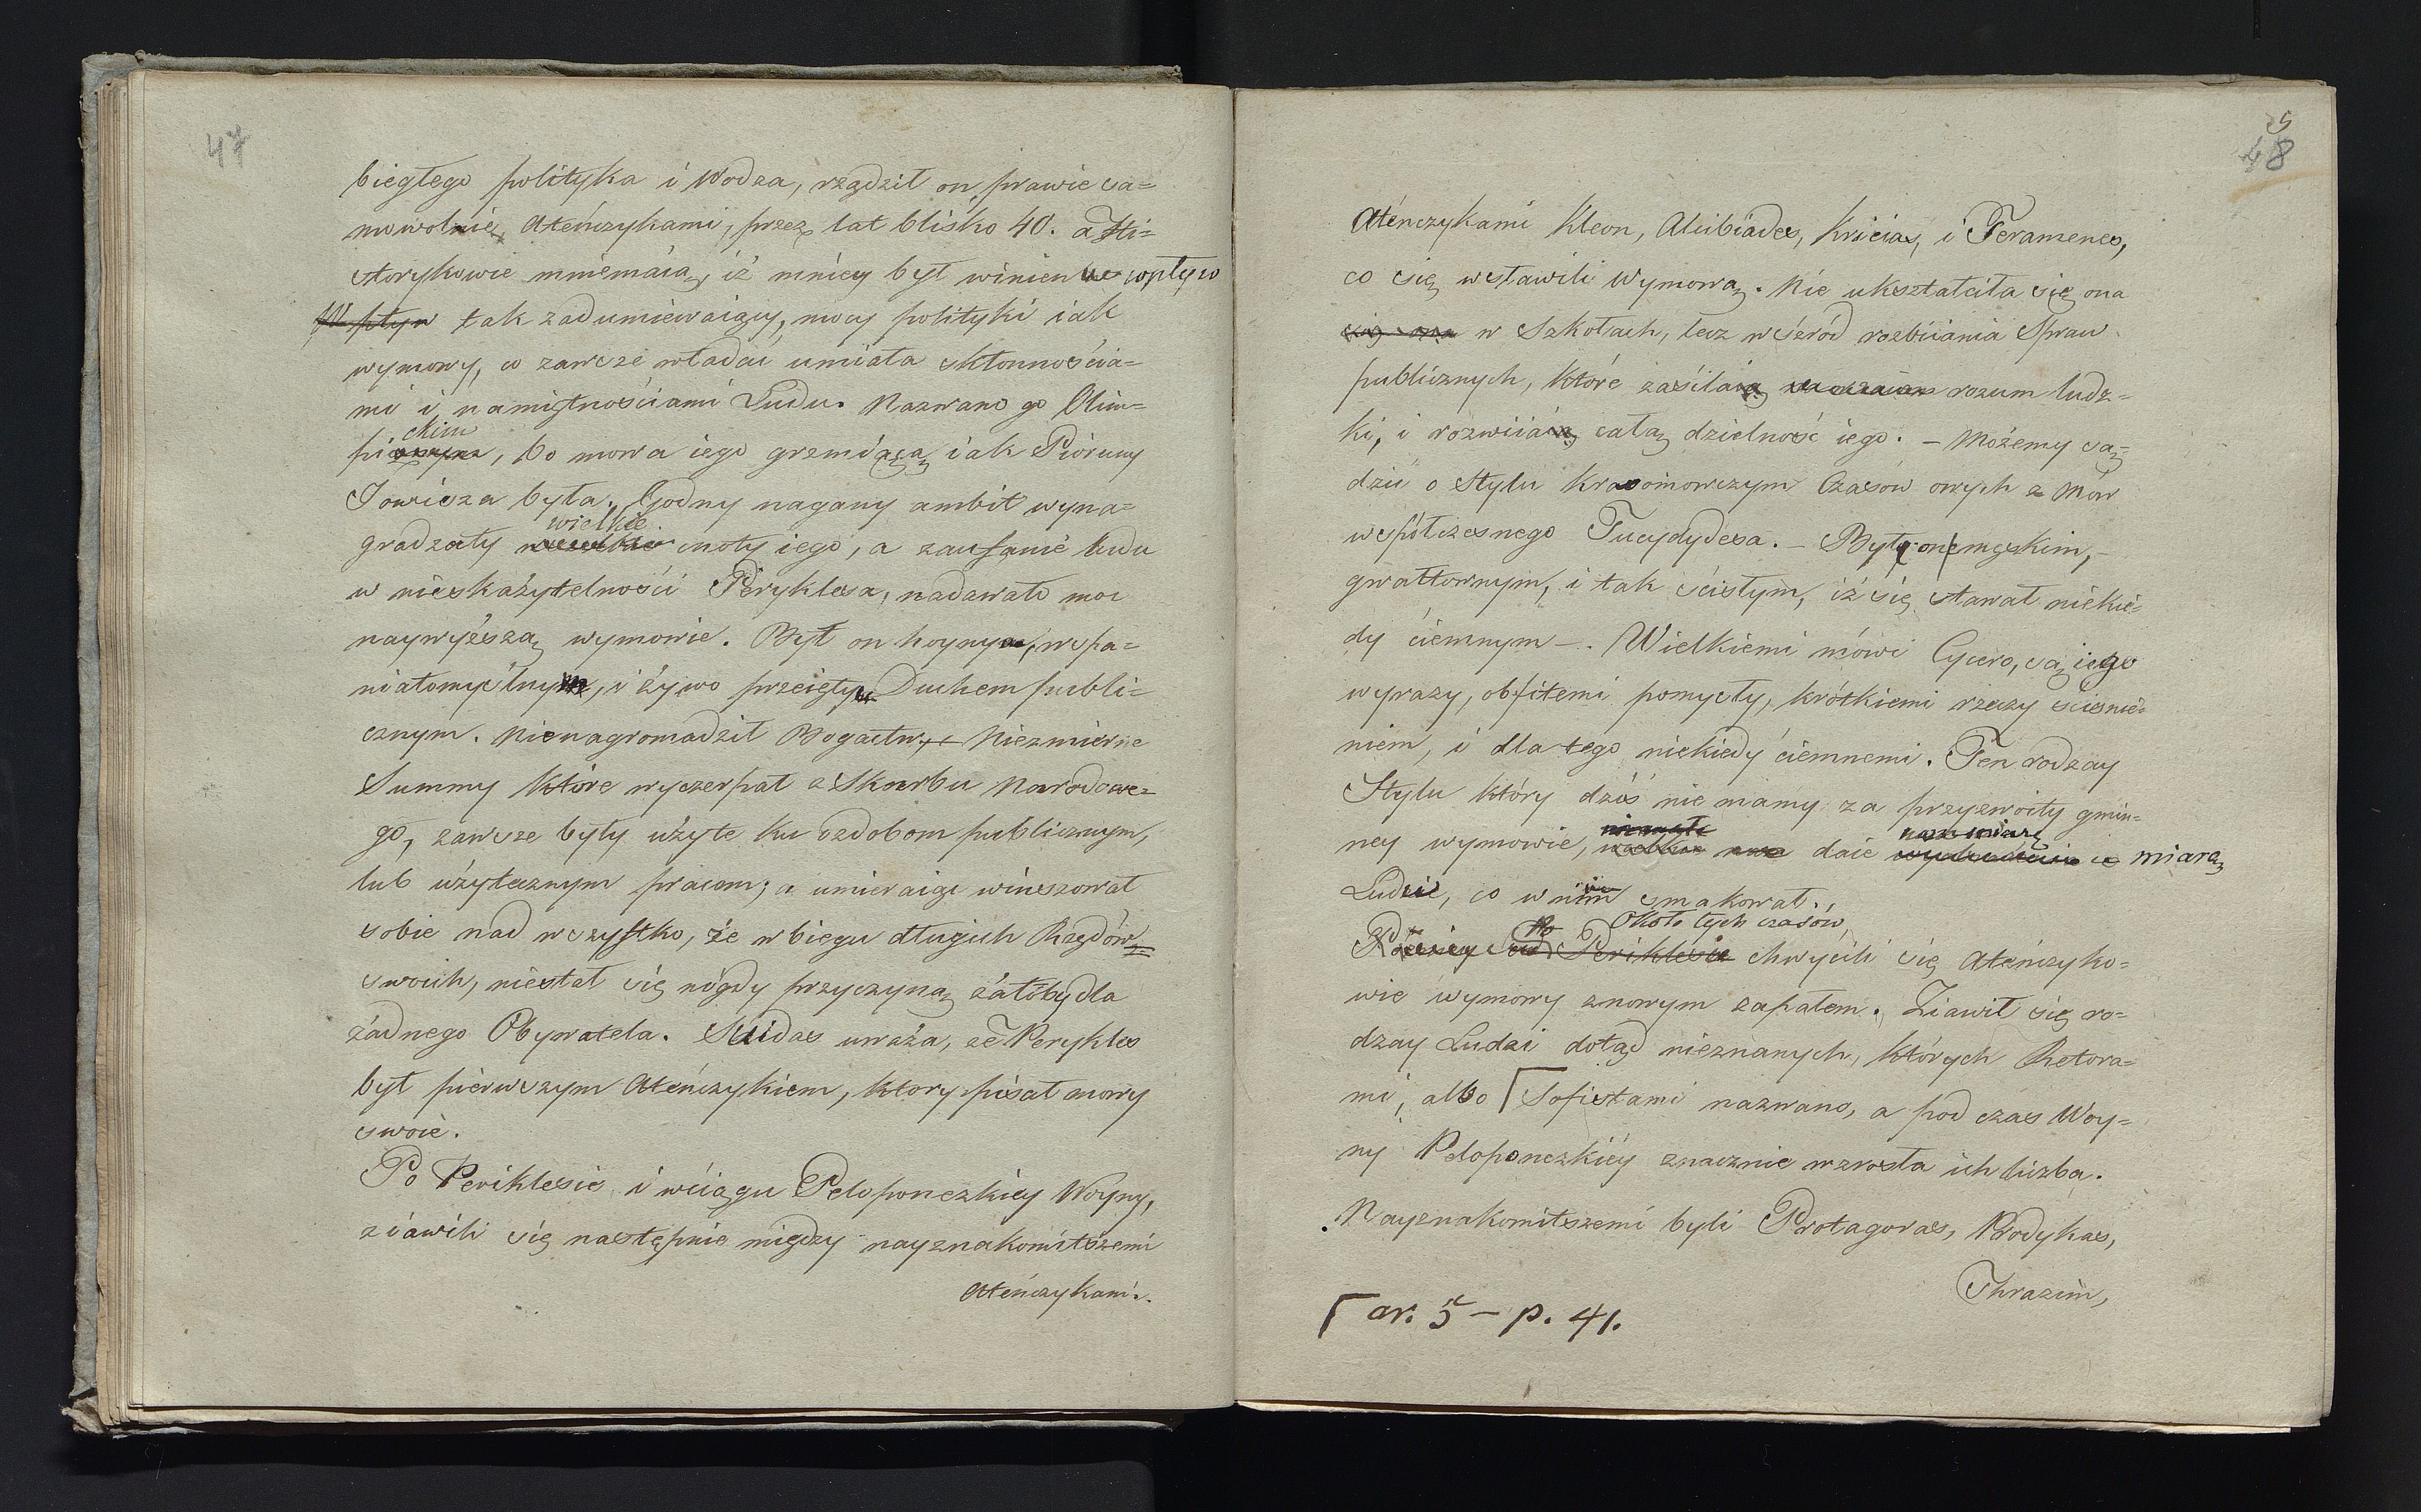 47
biegłego polityka i Wodza, rządził on prawie sa=
mowolnie Ateńczykami, przez lat blisko 40. a Hi=
storykowie mniemáią, iż mniey był winien wpływ
Wpływ tak zadumiewaiący, mocy polityki iak
wymowy, co zawsze władać umiała skłonnościa=
mi i namiętnościami Ludu. Nazwano go Olim=
skim
pi, bo mowa iego grzmiąca iak Pioruny
Jowisza była. Godny nagany ambit wyna=
wielkie
gradzały cnoty iego, a zaufanie ludu
w nieskażytelności Peryklesa, nadawało moc
naywyższą wymowie. Był on hoyny, wspa=
niałomyślny, i żywo przeięty Duchem publi=
cznym. Nienagromadził Bogactw, Niezmierne
Summy które wyczerpał z Skarbu Narodowe=
go, zawsze były użyte ku ozdobom publicznym,
lub użytecznym pracom; a umieraiąc winszował
sobie nad wszystko, że w biegu długich Rządów
swoich, niestał się nigdy przyczyną żałoby dla
żadnego Obywatela. Suidas uważa, że Perykles
był pierwszym Ateńczykiem, ktory pisał mowy
swoie.
Po Periklesie i wciągu Peloponezkiey Woyny,
ziawili się następnie między nayznakomitszemi
Ateńczykami.
5
48
Ateńczykami Kleon, Alcibiades, Kricias, i Teramenes,
co się wsławili Wymową. Nie ukształciła się ona
się ona w Szkołach, lecz wśród rozbiiania Spraw
publicznych, które zasilaią rozum ludz=
ki, i rozwiiaią całą dzielność iego. – Możemy są=
dzić o Stylu krasomowczym Czasów owych z Mów
współczesnego Tucydydesa. – Był on męskim, –
gwałtownym, i tak ścisłym, iż się stawał niekie=
dy ciemnym –. Wielkiemi mówi Cycero, są iego
wyrazy, obfitemi pomysły, krótkiemi rzeczy ścieśnie=
niem, i dla tego niekiedy ciemnemi. Ten rodzay
Stylu który dziś nie mamy za przyzwoity gmin=
ney wymowie, daie miarą
Ludzie, co w nim smakował.
Około tych czasów
Periklesie chwycili się Ateńczyko=
wie wymowy znowym zapałem. Ziawił się ro=
dzay Ludzi dotąd nieznanych, których Retora=
mi, albo ⌈Sofistami nazwano, a pod czas Woy=
ny Peloponezkiéy znacznie wzrosła ich liczba.
Nayznakomitszemi byli Protagoras, Prodykas,
Thrazim,
⌈ ar. 5 – p. 41.